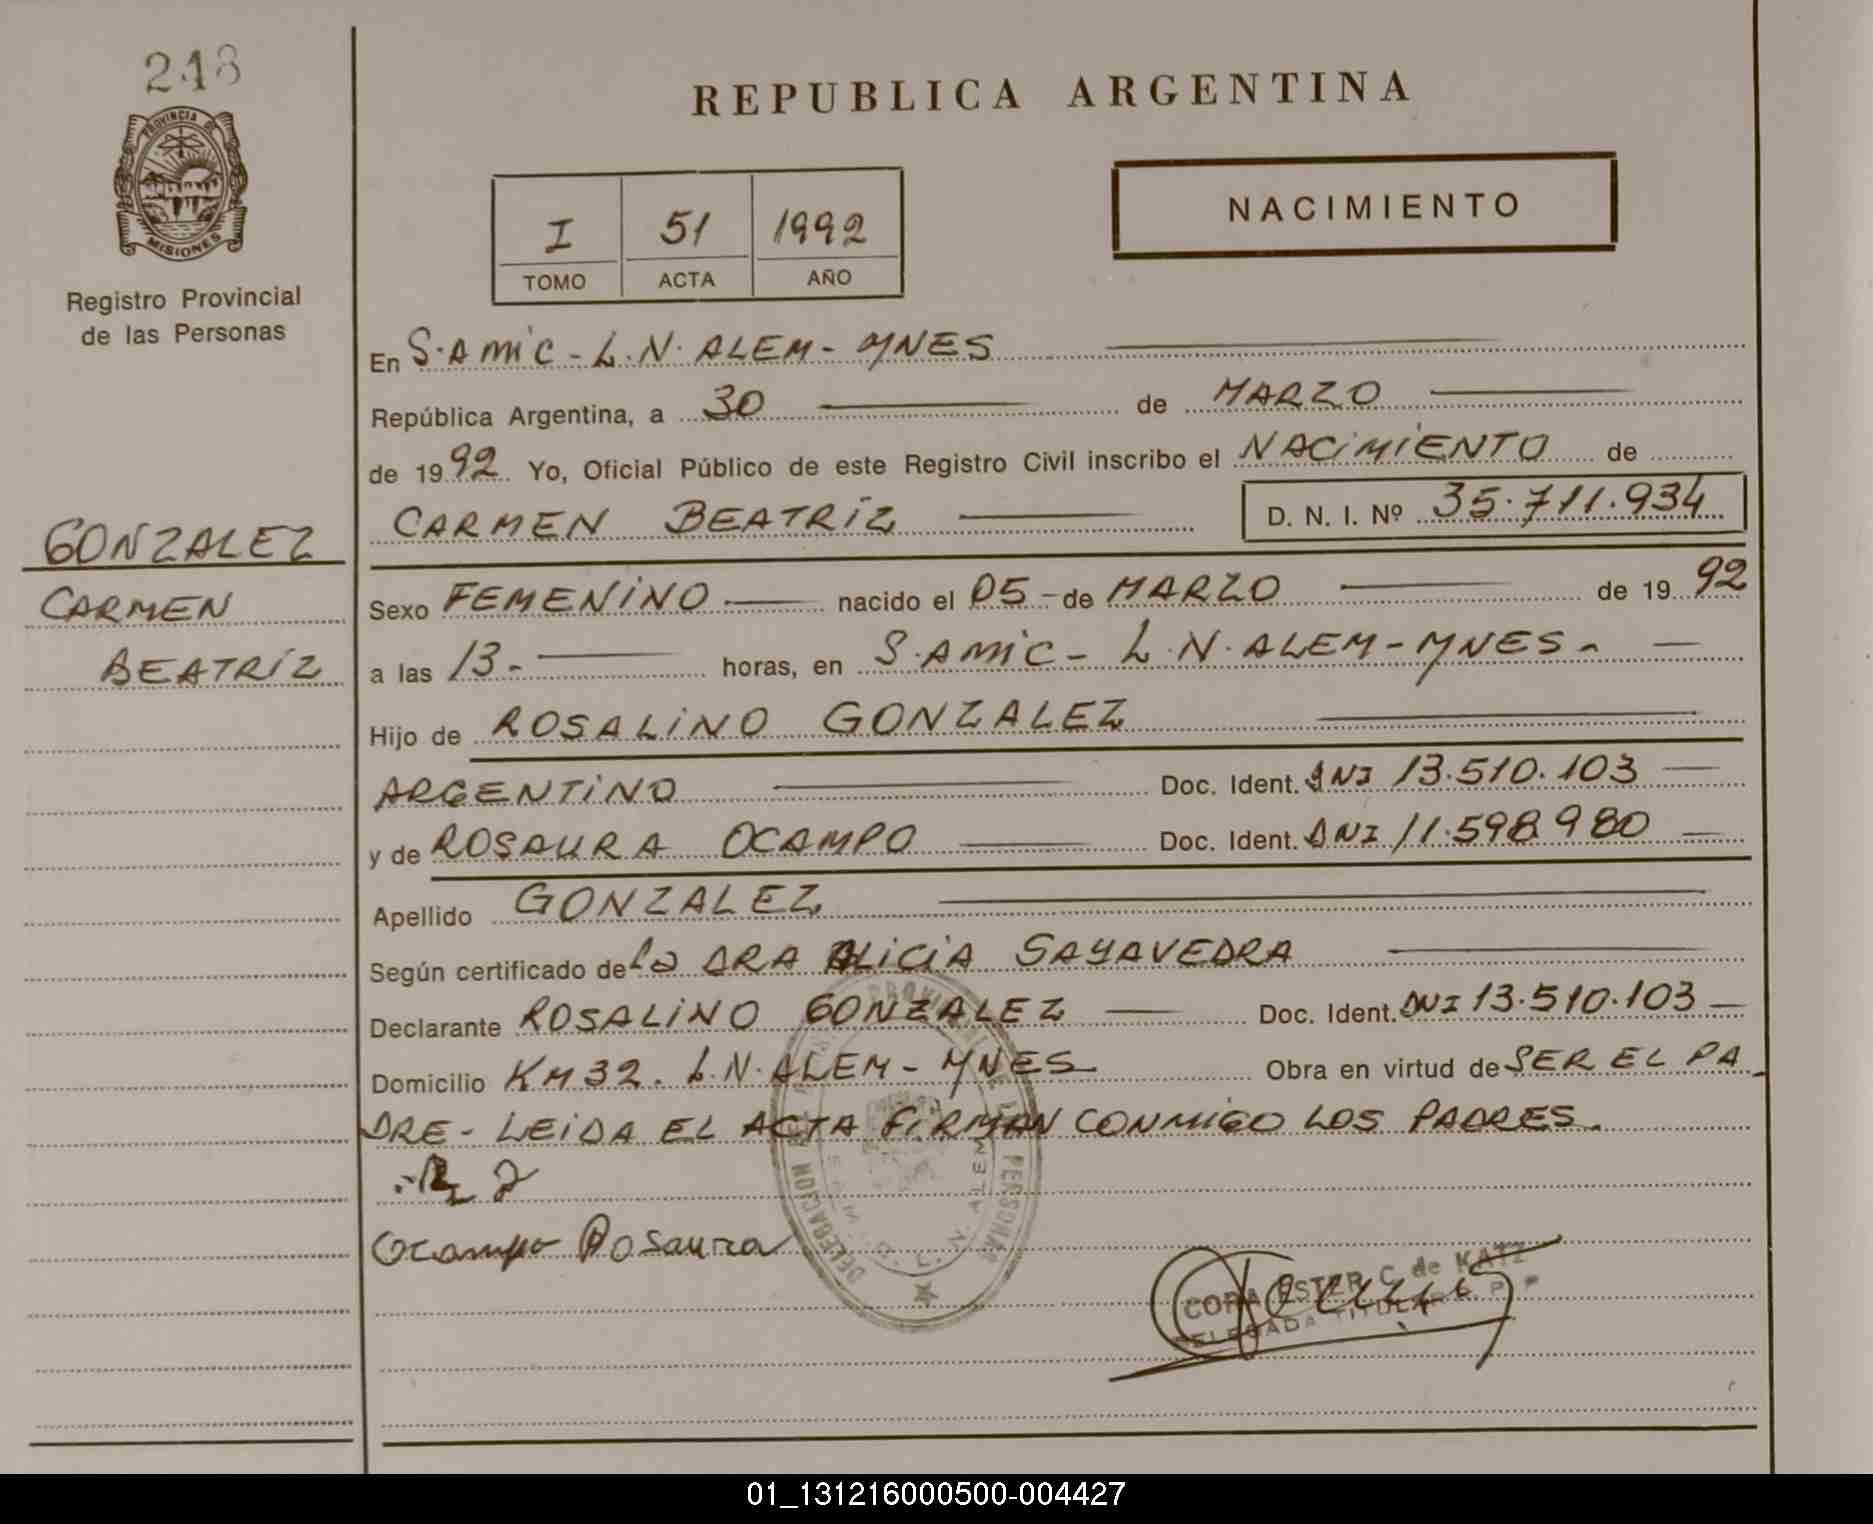 248
PROVINCIA DE
MISIONES
Registro Provincial
de las Personas
GONZALEZ
CARMEN
BEATRIZ
REPUBLICA ARGENTINA
I 51 1992
TOMO ACTA AÑO
NACIMIENTO
En S. AMIC - L.N. ALEM - MNES
República Argentina, a 30 de MARZO
de 1992 Yo, Oficial Público de este Registro Civil inscribo el NACIMIENTO de
CARMEN BEATRIZ D. N. I. Nº 35.711.934
Sexo FEMENINO nacido el 05 - de MARZO de 1992
a las 13.- horas, en S. AMIC - L.N. ALEM - MNES.-
Hijo de ROSALINO GONZALEZ
ARGENTINO Doc. Ident. DNI 13.510.103
y de ROSAURA OCAMPO Doc. Ident. DNI 11.598.980
Apellido GONZALEZ
Según certificado de la DRA ALICIA SAYAVEDRA
Declarante ROSALINO GONZALEZ Doc. Ident. DNI 13.510.103
Domicilio KM 32. L.N. ALEM - MNES Obra en virtud de SER EL PA
DRE - LEIDA EL ACTA FIRMAN CONMIGO LOS PADRES.
Ocampo Rosaura
DELEGACION PROVINCIAL DE LAS PERSONAS
L. N. ALEM
CORA ESTER C. de KATZ
DELEGADA TITULAR
01_131216000500-004427